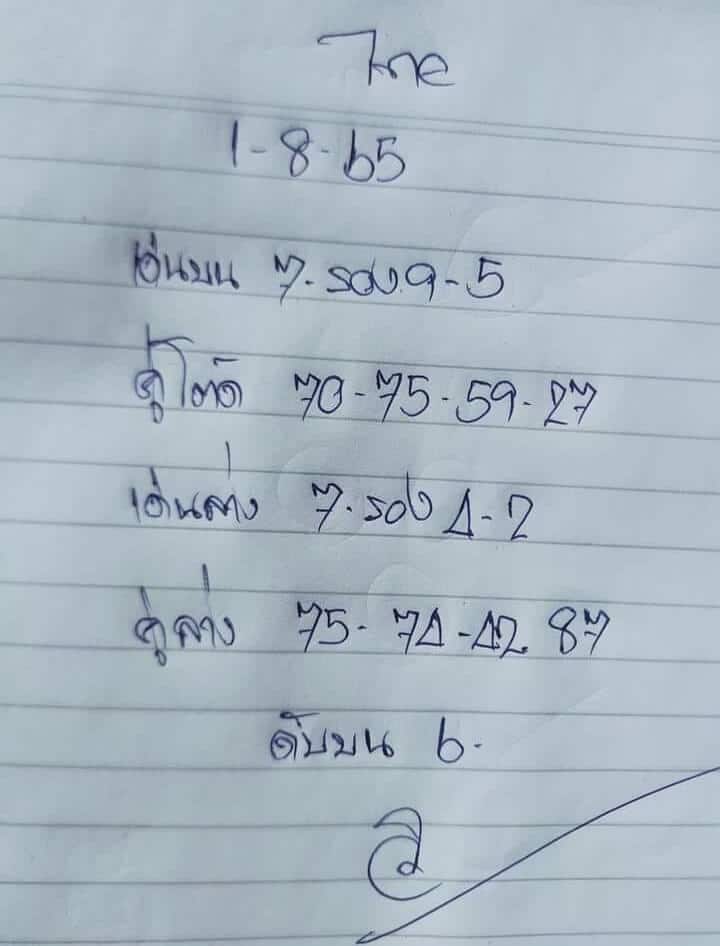 ไทย
1-8-65
เด่นบน 7.รอง 9-5
คู่โต๊ด 70-75-59-27
เด่นล่าง 7.รอง 4-2
คู่ล่าง 75-74-42 87
ดับบน 6.